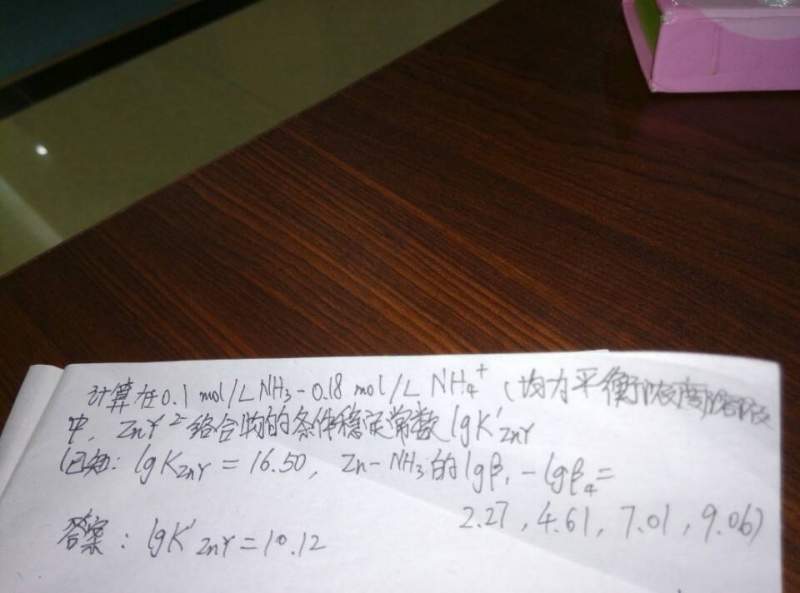 计算在0.1 mol/L NH₃-0.18 mol/L NH₄⁺(均为平衡浓度)溶液
中, ZnY²⁻络合物的条件稳定常数lgK'ZnY
(已知: lgKZnY = 16.50, Zn-NH₃的lgβ₁-lgβ₄=
2.27, 4.61, 7.01, 9.06)
答案: lgK'ZnY=10.12